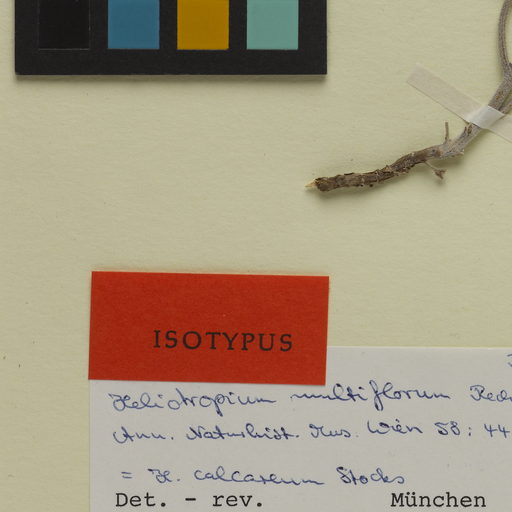 ISOTYPUS
Heliotropium multiflorum
Ann. Naturhist. Mus. Wien 58: 44
= H. calcareum Stocks
Det. - rev. München